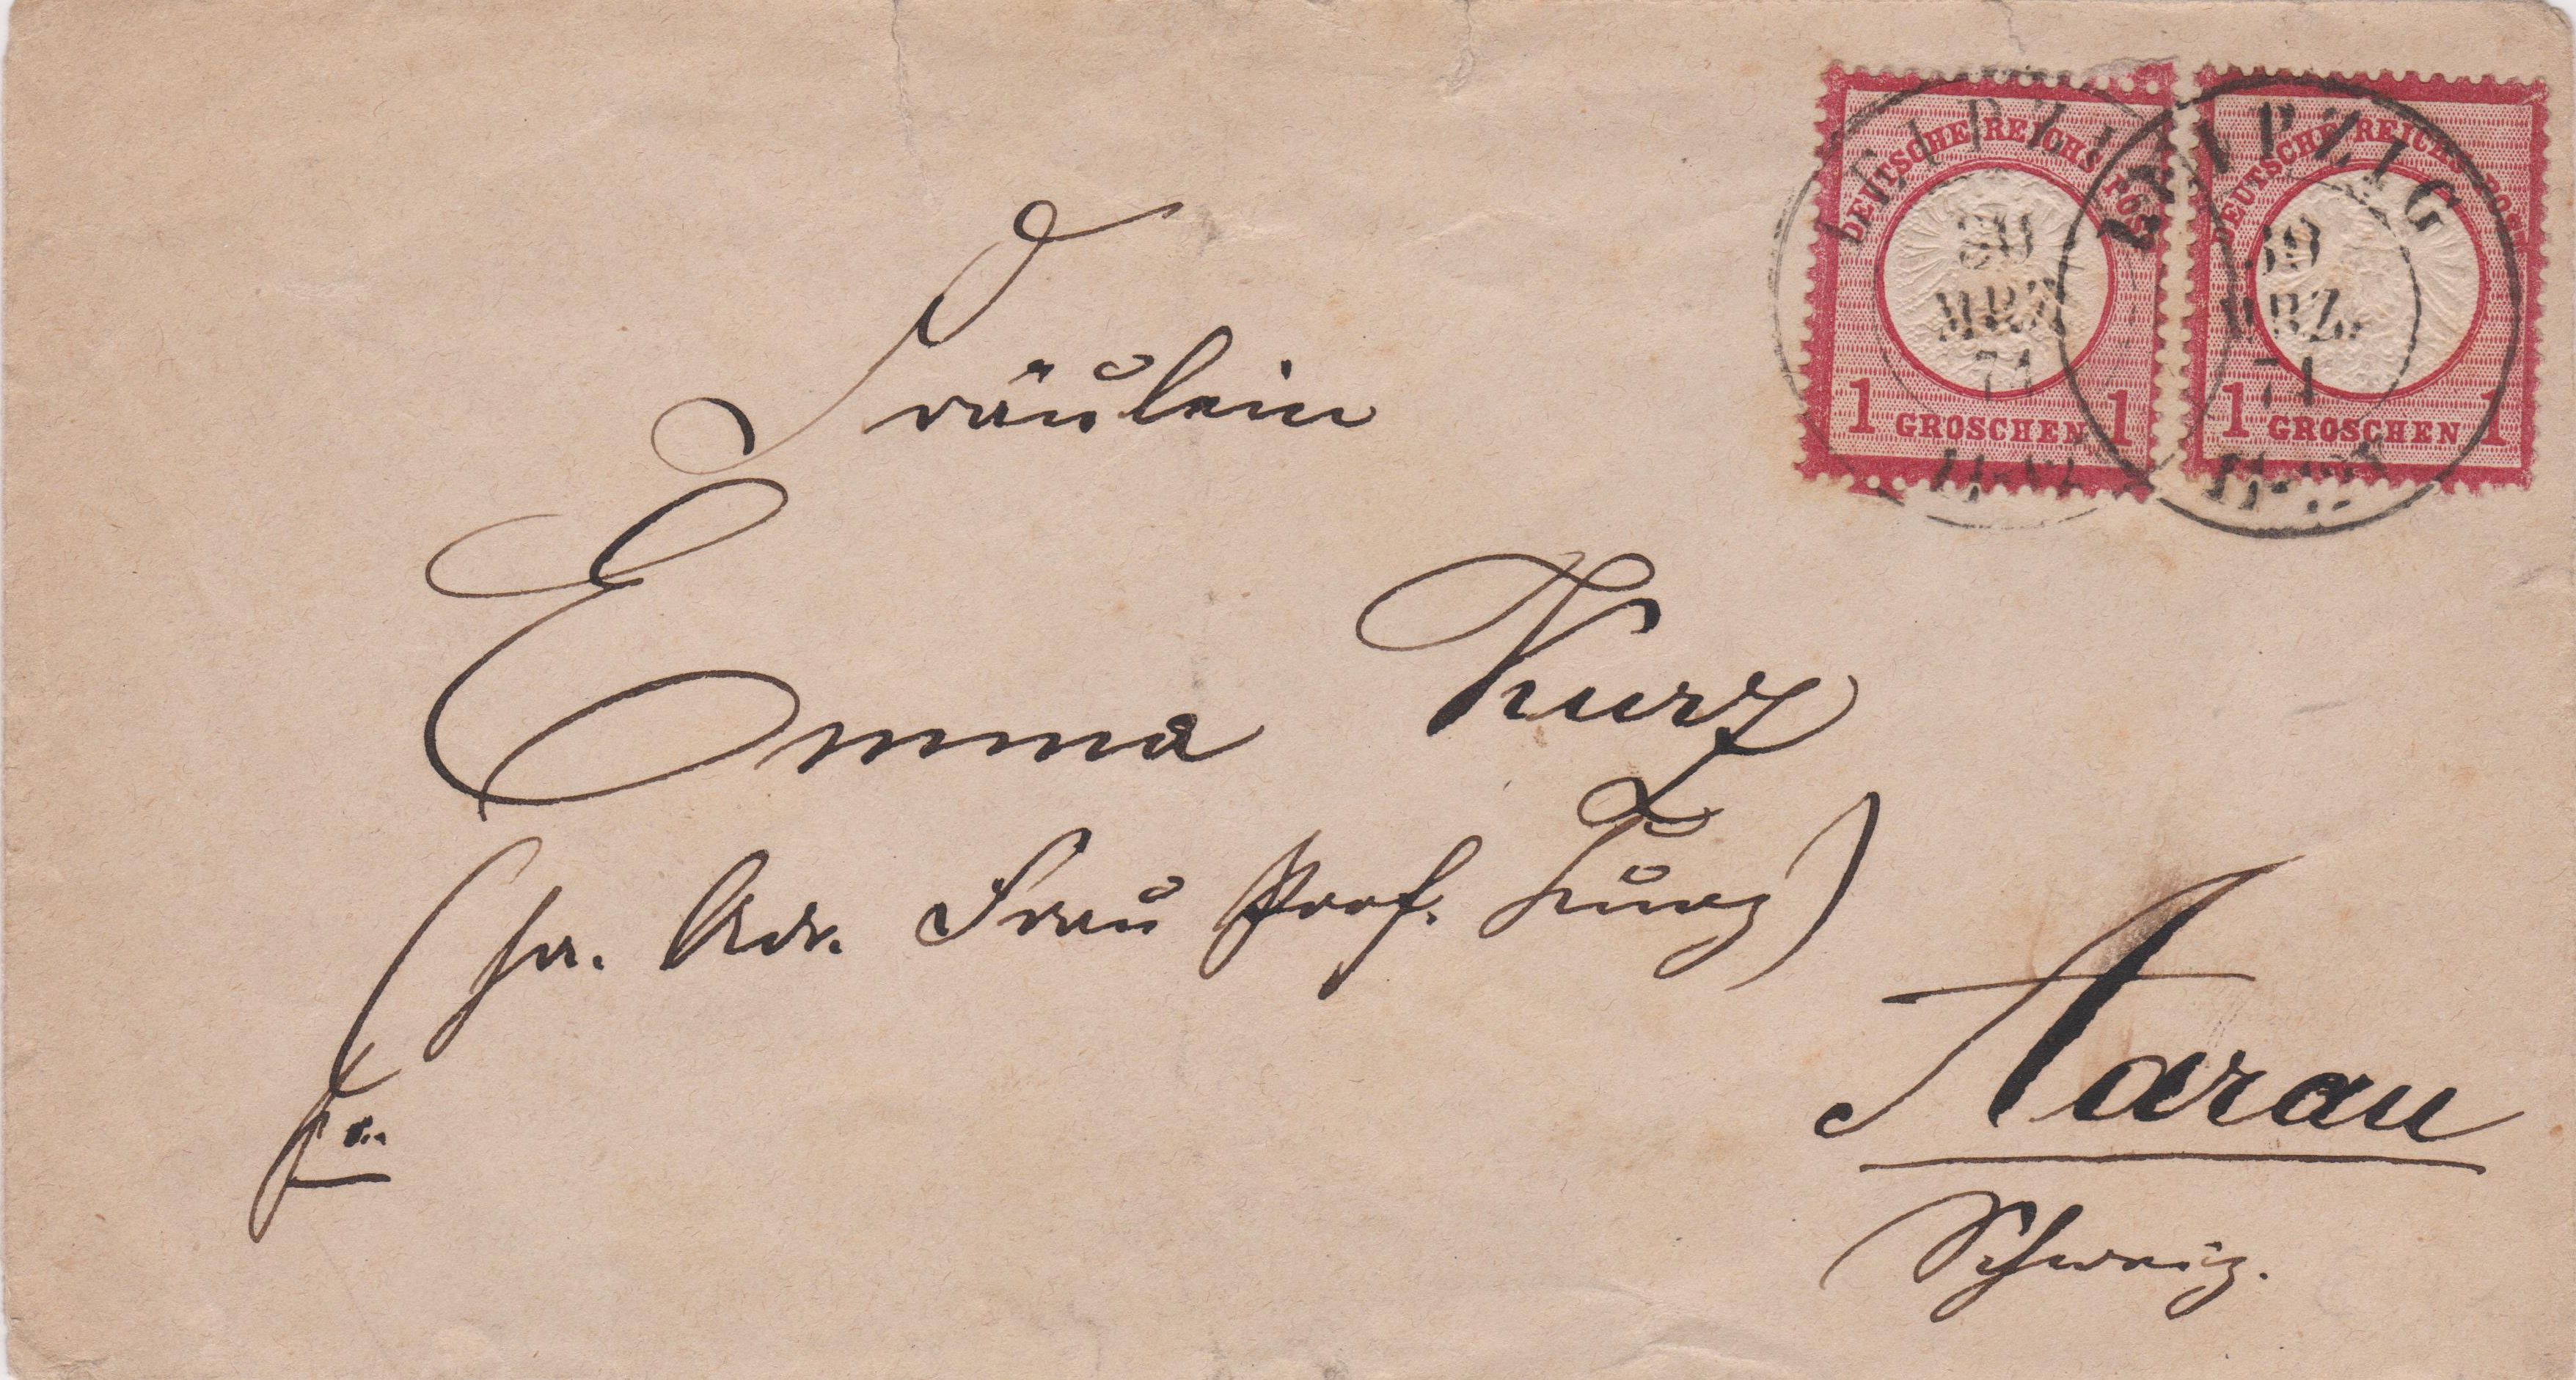 DEUTSCHE REICHS-POST
1 GROSCHEN 1
DEUTSCHE REICHS-POST
1 GROSCHEN 1
LEIPZIG
MRZ
74
LEIPZIG
30
MRZ.
74
Fräulein
Emma Kurz
(pr. Adr. Frau Prof. Kurz)
Aarau
fr.
Schweiz.